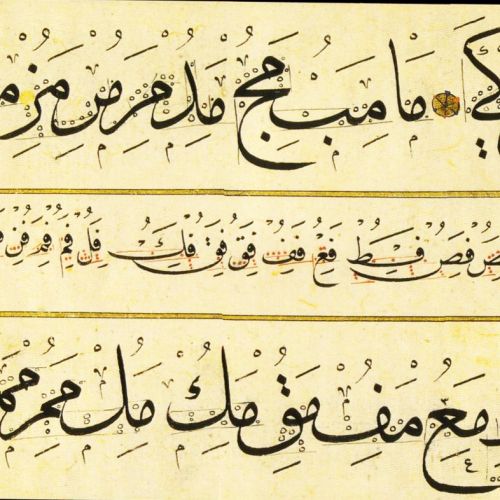 ما مب مج مد مر
فص فط فع فف فق فق فك فل فم فم فن
مع مف مق مك مل